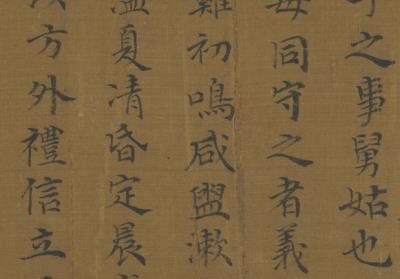 子之事舅姑也
母同守之者義
雞初鳴咸盥漱
溫夏凊昏定晨
方外禮信立